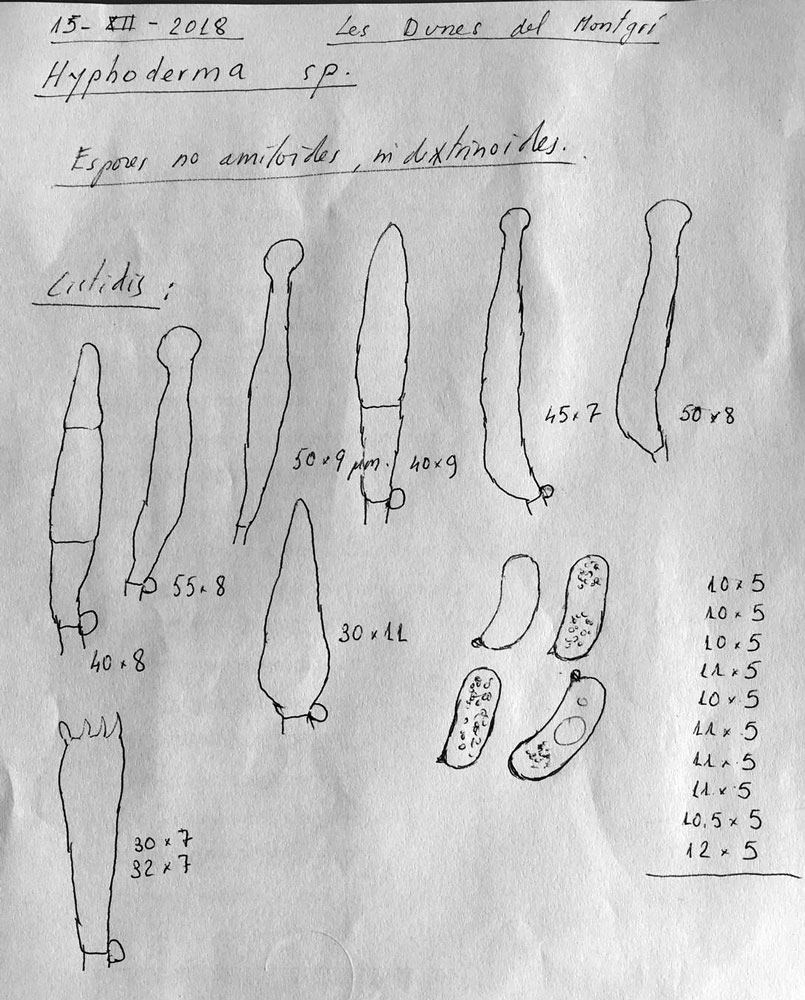 15-XII-2018 Les Dunes del Montgrí
Hyphoderma sp.
Espores no amiloides, ni dextrinoides.
Cistidis:
45×7
50×8
50×9 µm.
40×9
55×8
30×11
40×8
10×5
10×5
10×5
11×5
10×5
11×5
11×5
11×5
10,5×5
12×5
30×7
32×7